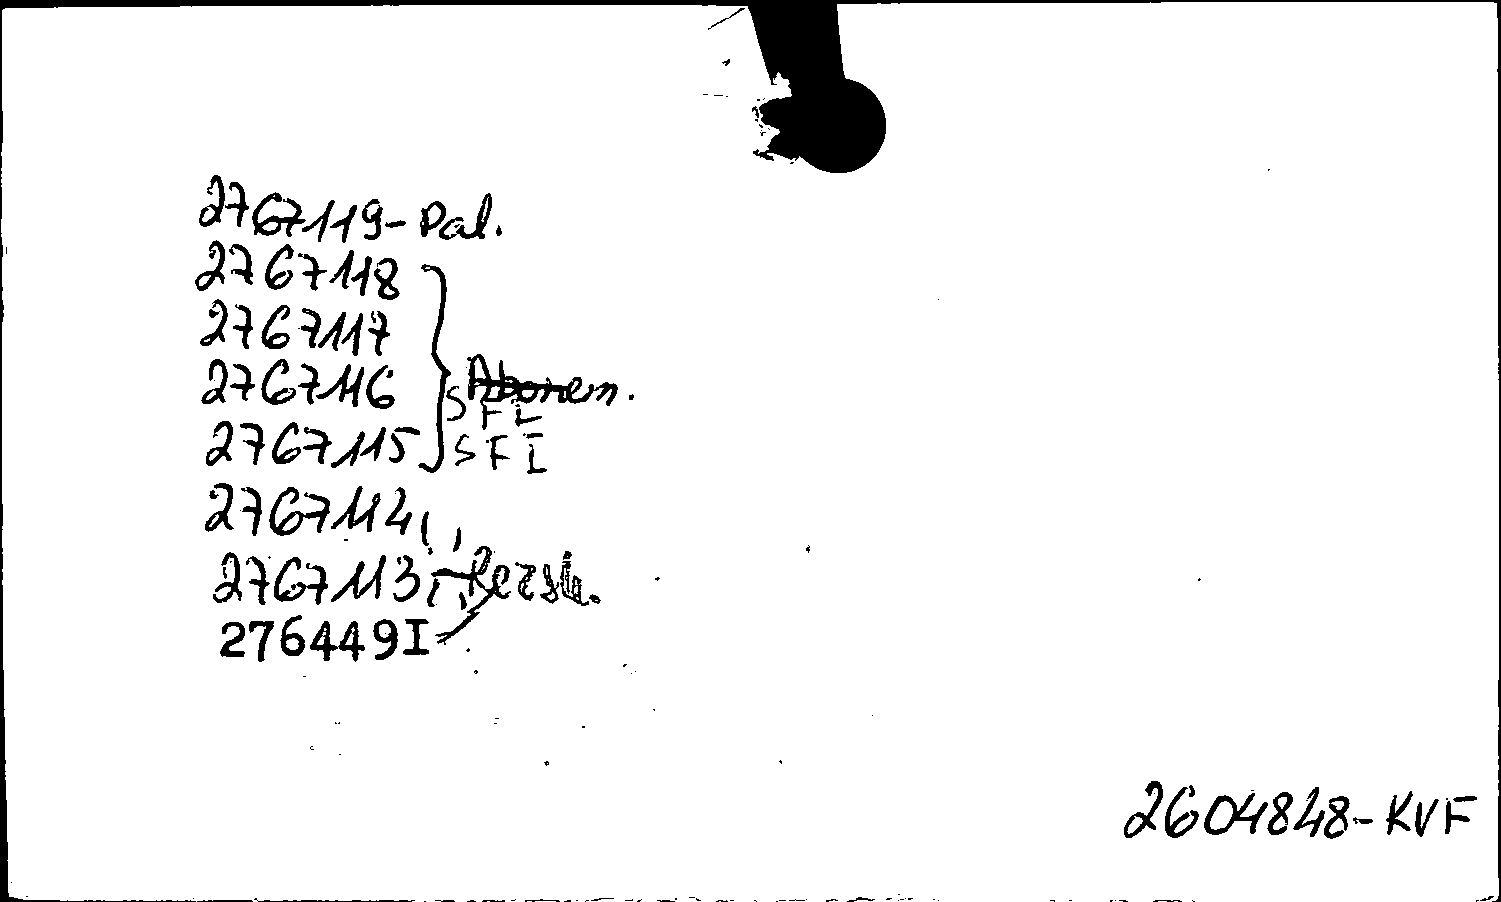 2767119-Pal.
2767118
2767117
2767116 Abonem.
SFL
2767115 SFI
2767114
2767113
276449I
2604848-KVF